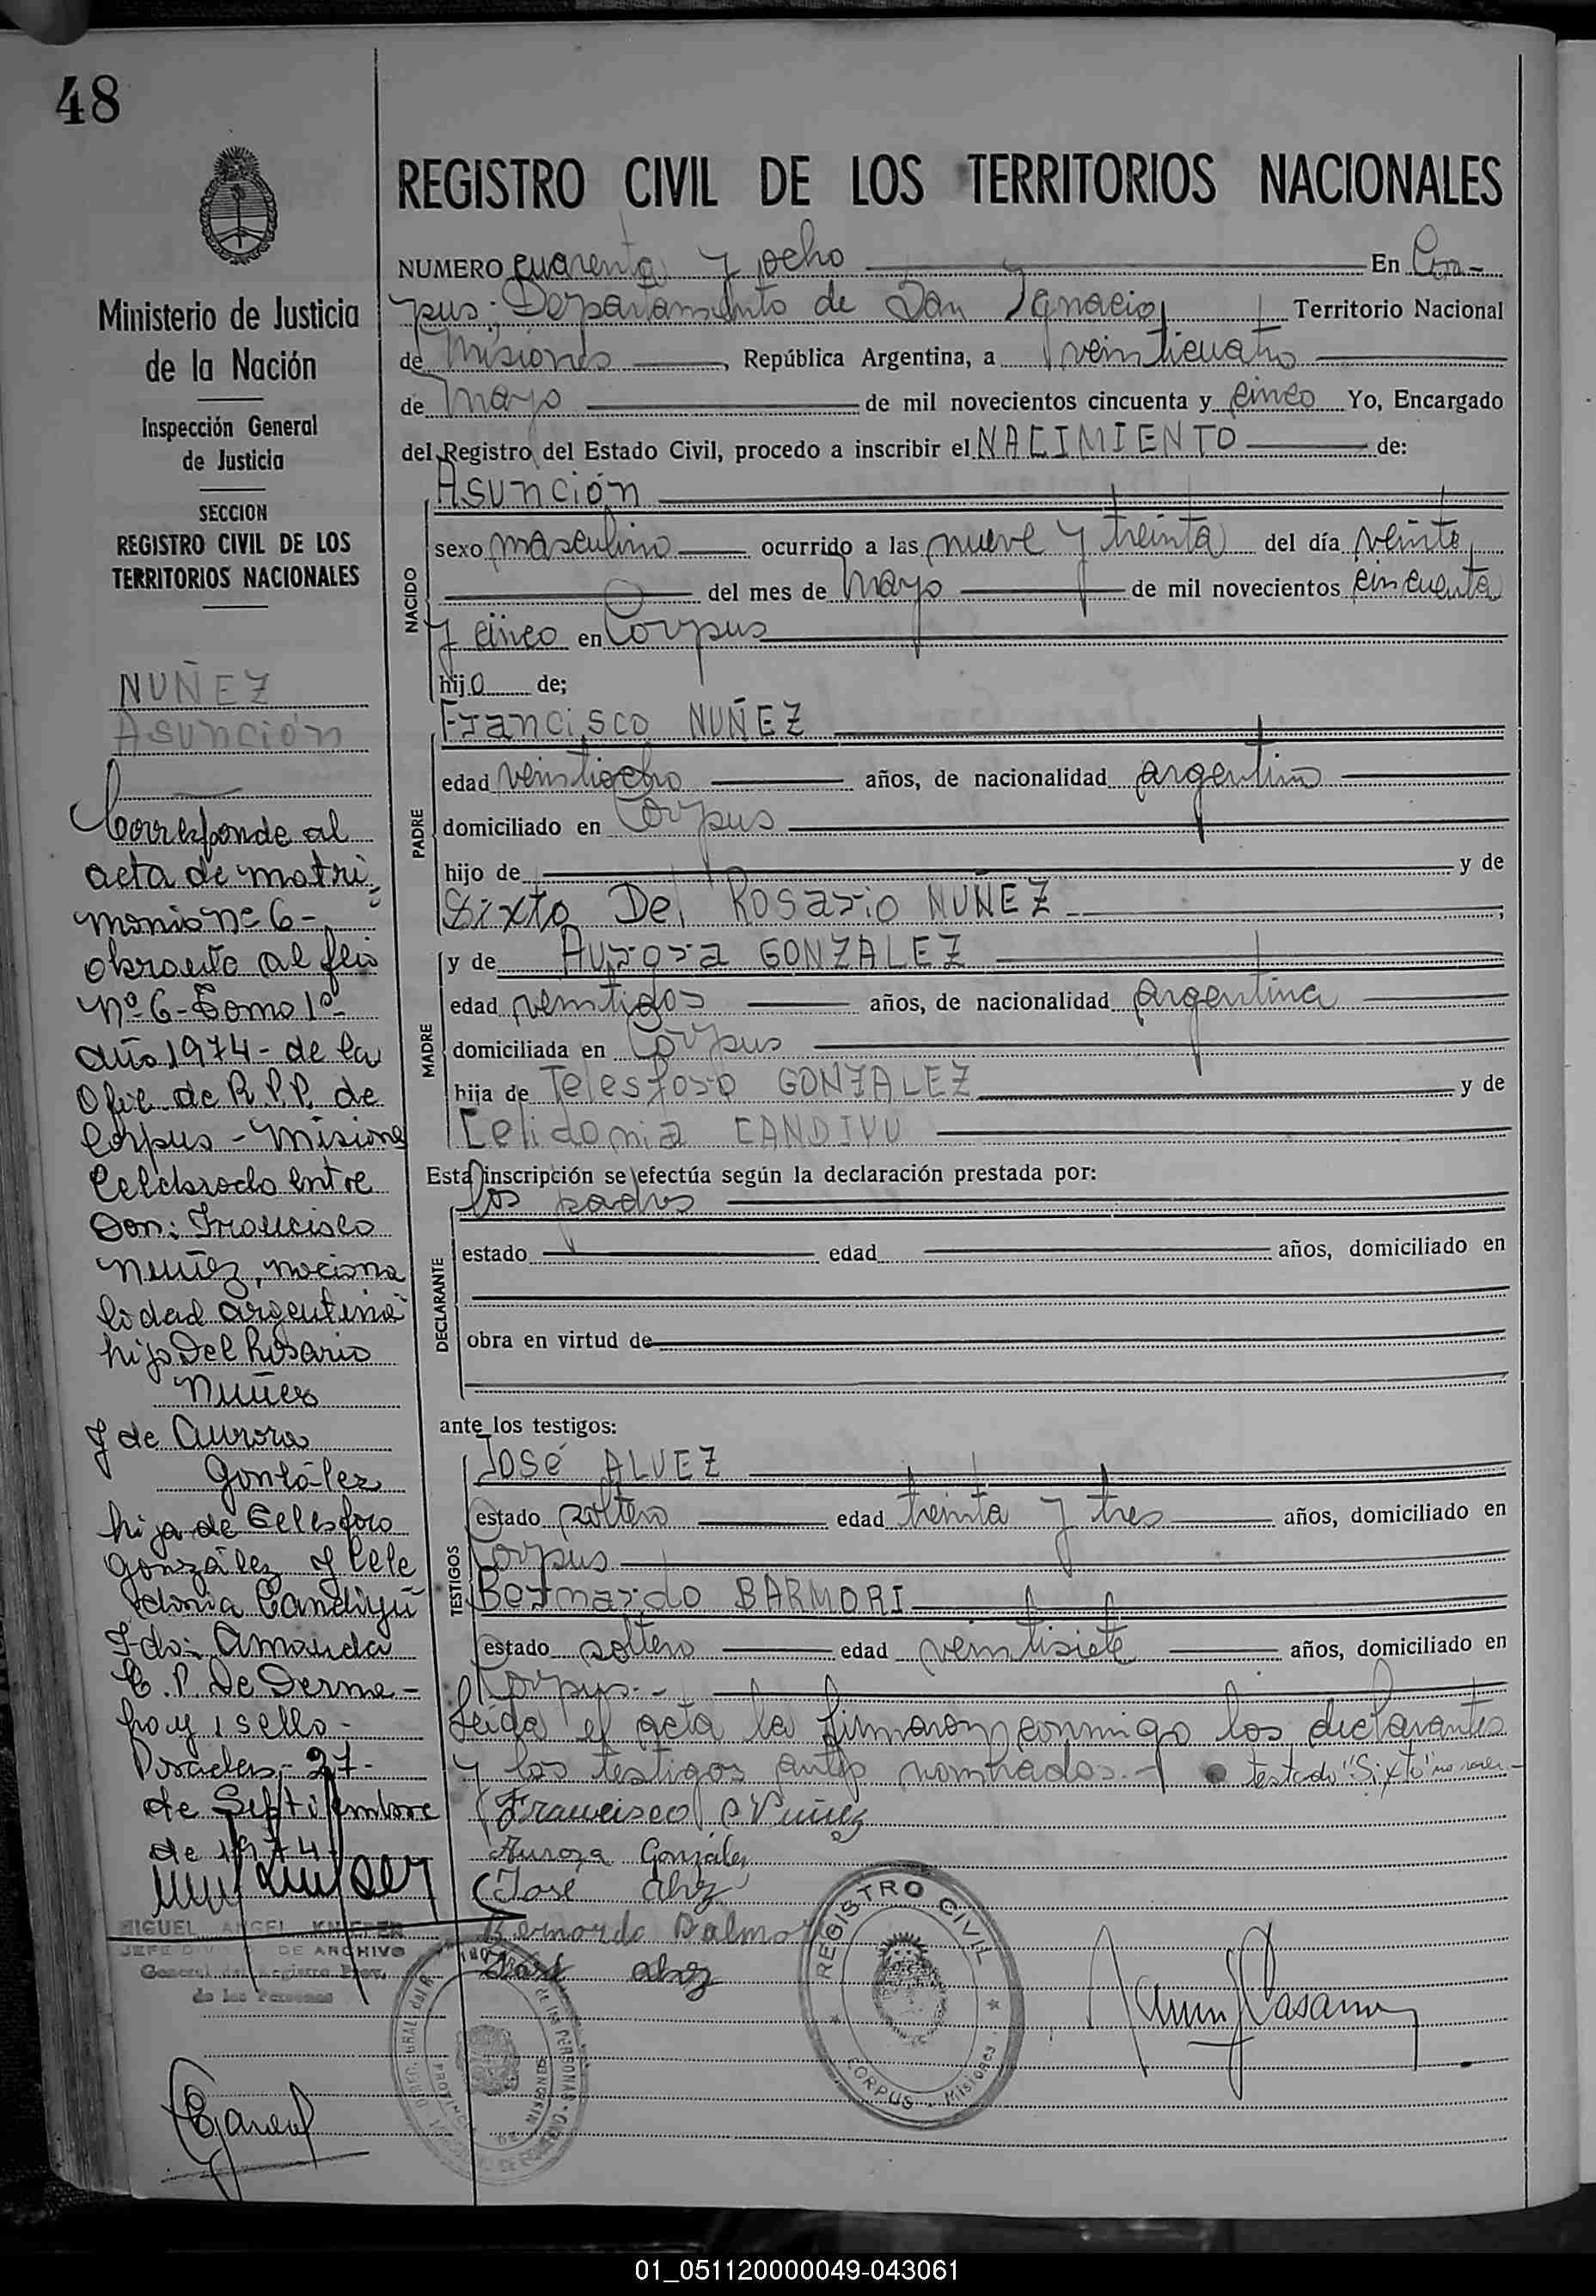 48
REGISTRO CIVIL DE LOS TERRITORIOS NACIONALES
NUMERO cuarenta y ocho En Cor-
pus; Departamento de San Ignacio, Territorio Nacional
de Misiones, República Argentina, a veinticuatro
de mayo de mil novecientos cincuenta y cinco Yo, Encargado
del Registro del Estado Civil, procedo a inscribir el NACIMIENTO de:
NACIDO
Asunción
sexo masculino ocurrido a las nueve y treinta del día veinte
del mes de mayo de mil novecientos cincuenta
y cinco en Corpus
hijo de;
PADRE
Francisco NUÑEZ
edad veintiocho años, de nacionalidad argentino
domiciliado en Corpus
hijo de y de
Sixto Del Rosario NUÑEZ;
MADRE
y de Aurora GONZALEZ
edad veintidos años, de nacionalidad argentina
domiciliada en Corpus
hija de Telesforo GONZALEZ y de
Celidonia CANDIYU
Esta inscripción se efectúa según la declaración prestada por:
DECLARANTE
los padres
estado edad años, domiciliado en
obra en virtud de
ante los testigos:
TESTIGOS
José ALVEZ
estado soltero edad treinta y tres años, domiciliado en
Corpus
Bernardo BARMORI
estado soltero edad veintisiete años, domiciliado en
Corpus.-
Leida el acta la firmaron conmigo los declarantes
y los testigos antes nombrados.- testado "Sixto" no vale.-
Francisco Nuñez
Aurora González
José Alvez
Bernardo Balmori
José Alvez
REGISTRO CIVIL
CORPUS - Misiones
Ministerio de Justicia
de la Nación
Inspección General
de Justicia
SECCION
REGISTRO CIVIL DE LOS
TERRITORIOS NACIONALES
NUÑEZ
Asunción
Corresponde al
acta de matri-
monio nº 6-
obrante al flio
nº 6-Tomo 1º
año 1974- de la
Ofic. de R.P.P. de
Corpus - Misiones
Celebrado entre
Don: Francisco
Nuñez, naciona
lidad argentina
hijo Del Rosario
Nuñez
y de Aurora
González
hija de Telesforo
González y Cele
donia Candiyú
Fdo: Amanda
C. P. De
hay 1 sello-
Posadas,- 27-
de Septiembre
de 1974
MIGUEL ANGEL KNIEPER
JEFE DE ARCHIVO
General del Registro Prov.
de las Personas
01_051120000049-043061